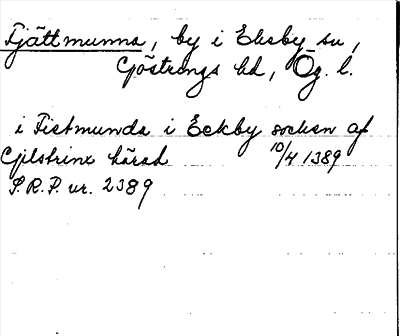 Fjättmunna, by i Ekeby sn,
Göstrings hd, Ög. l.
i Fietmunda i Eckby socken af
Gilstrinx härad 10/4 1389
S.R.P. nr. 2389